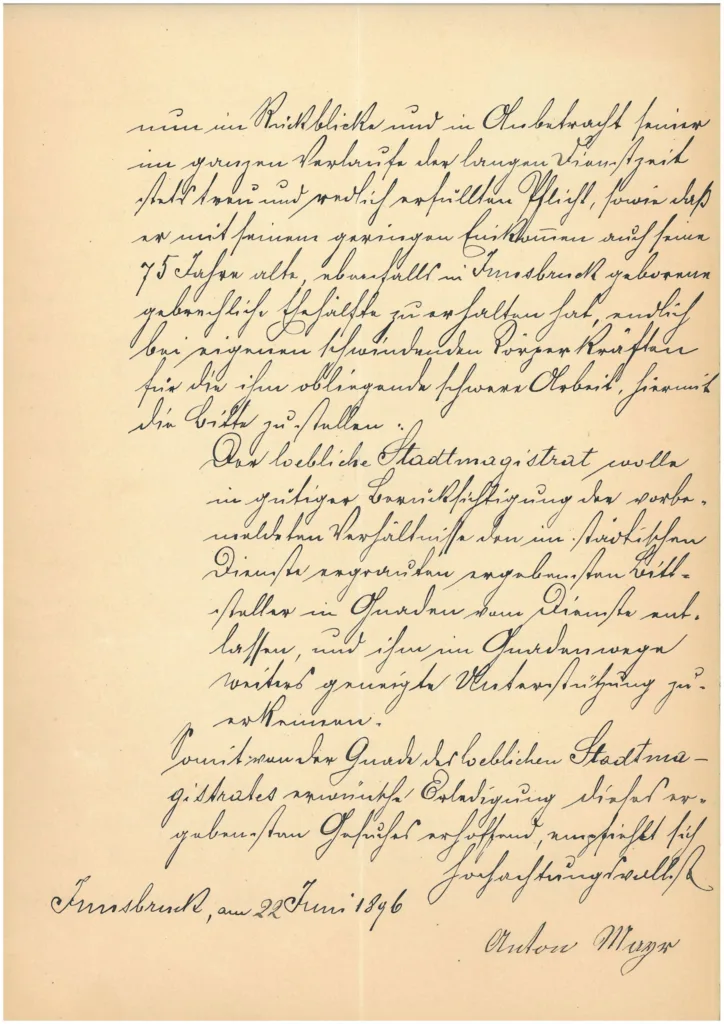 nun im Rückblicke und in Anbetracht seiner
im ganzen Verlaufe der langen Dienstzeit
stets treu und redlich erfüllten Pflicht, sowie daß
er mit seinem geringen Einkommen auch seine
75 Jahre alte, ebenfalls in Innsbruck geborene
gebrechliche Ehehälfte zu erhalten hat, endlich
bei eigenen schwindenden Körperkräften
für die ihm obliegende schwere Arbeit, hiermit
die Bitte zu stellen:
Der loebliche Stadtmagistrat wolle
in gütiger Berücksichtigung der vorbe-
meldeten Verhältnisse den im städtischen
Dienste ergrauten ergebensten Bitt-
steller in Gnaden vom Dienste ent-
lassen, und ihm im Gnadenwege
weiters geneigte Unterstützung zu-
erkennen.
Somit von der Gnade des loeblichen Stadtma-
gistrates erwünschte Erledigung dieses er-
gebensten Gesuches erhoffend, empfiehlt sich
hochachtungsvollst
Innsbruck, am 22 Juni 1896
Anton Mayr